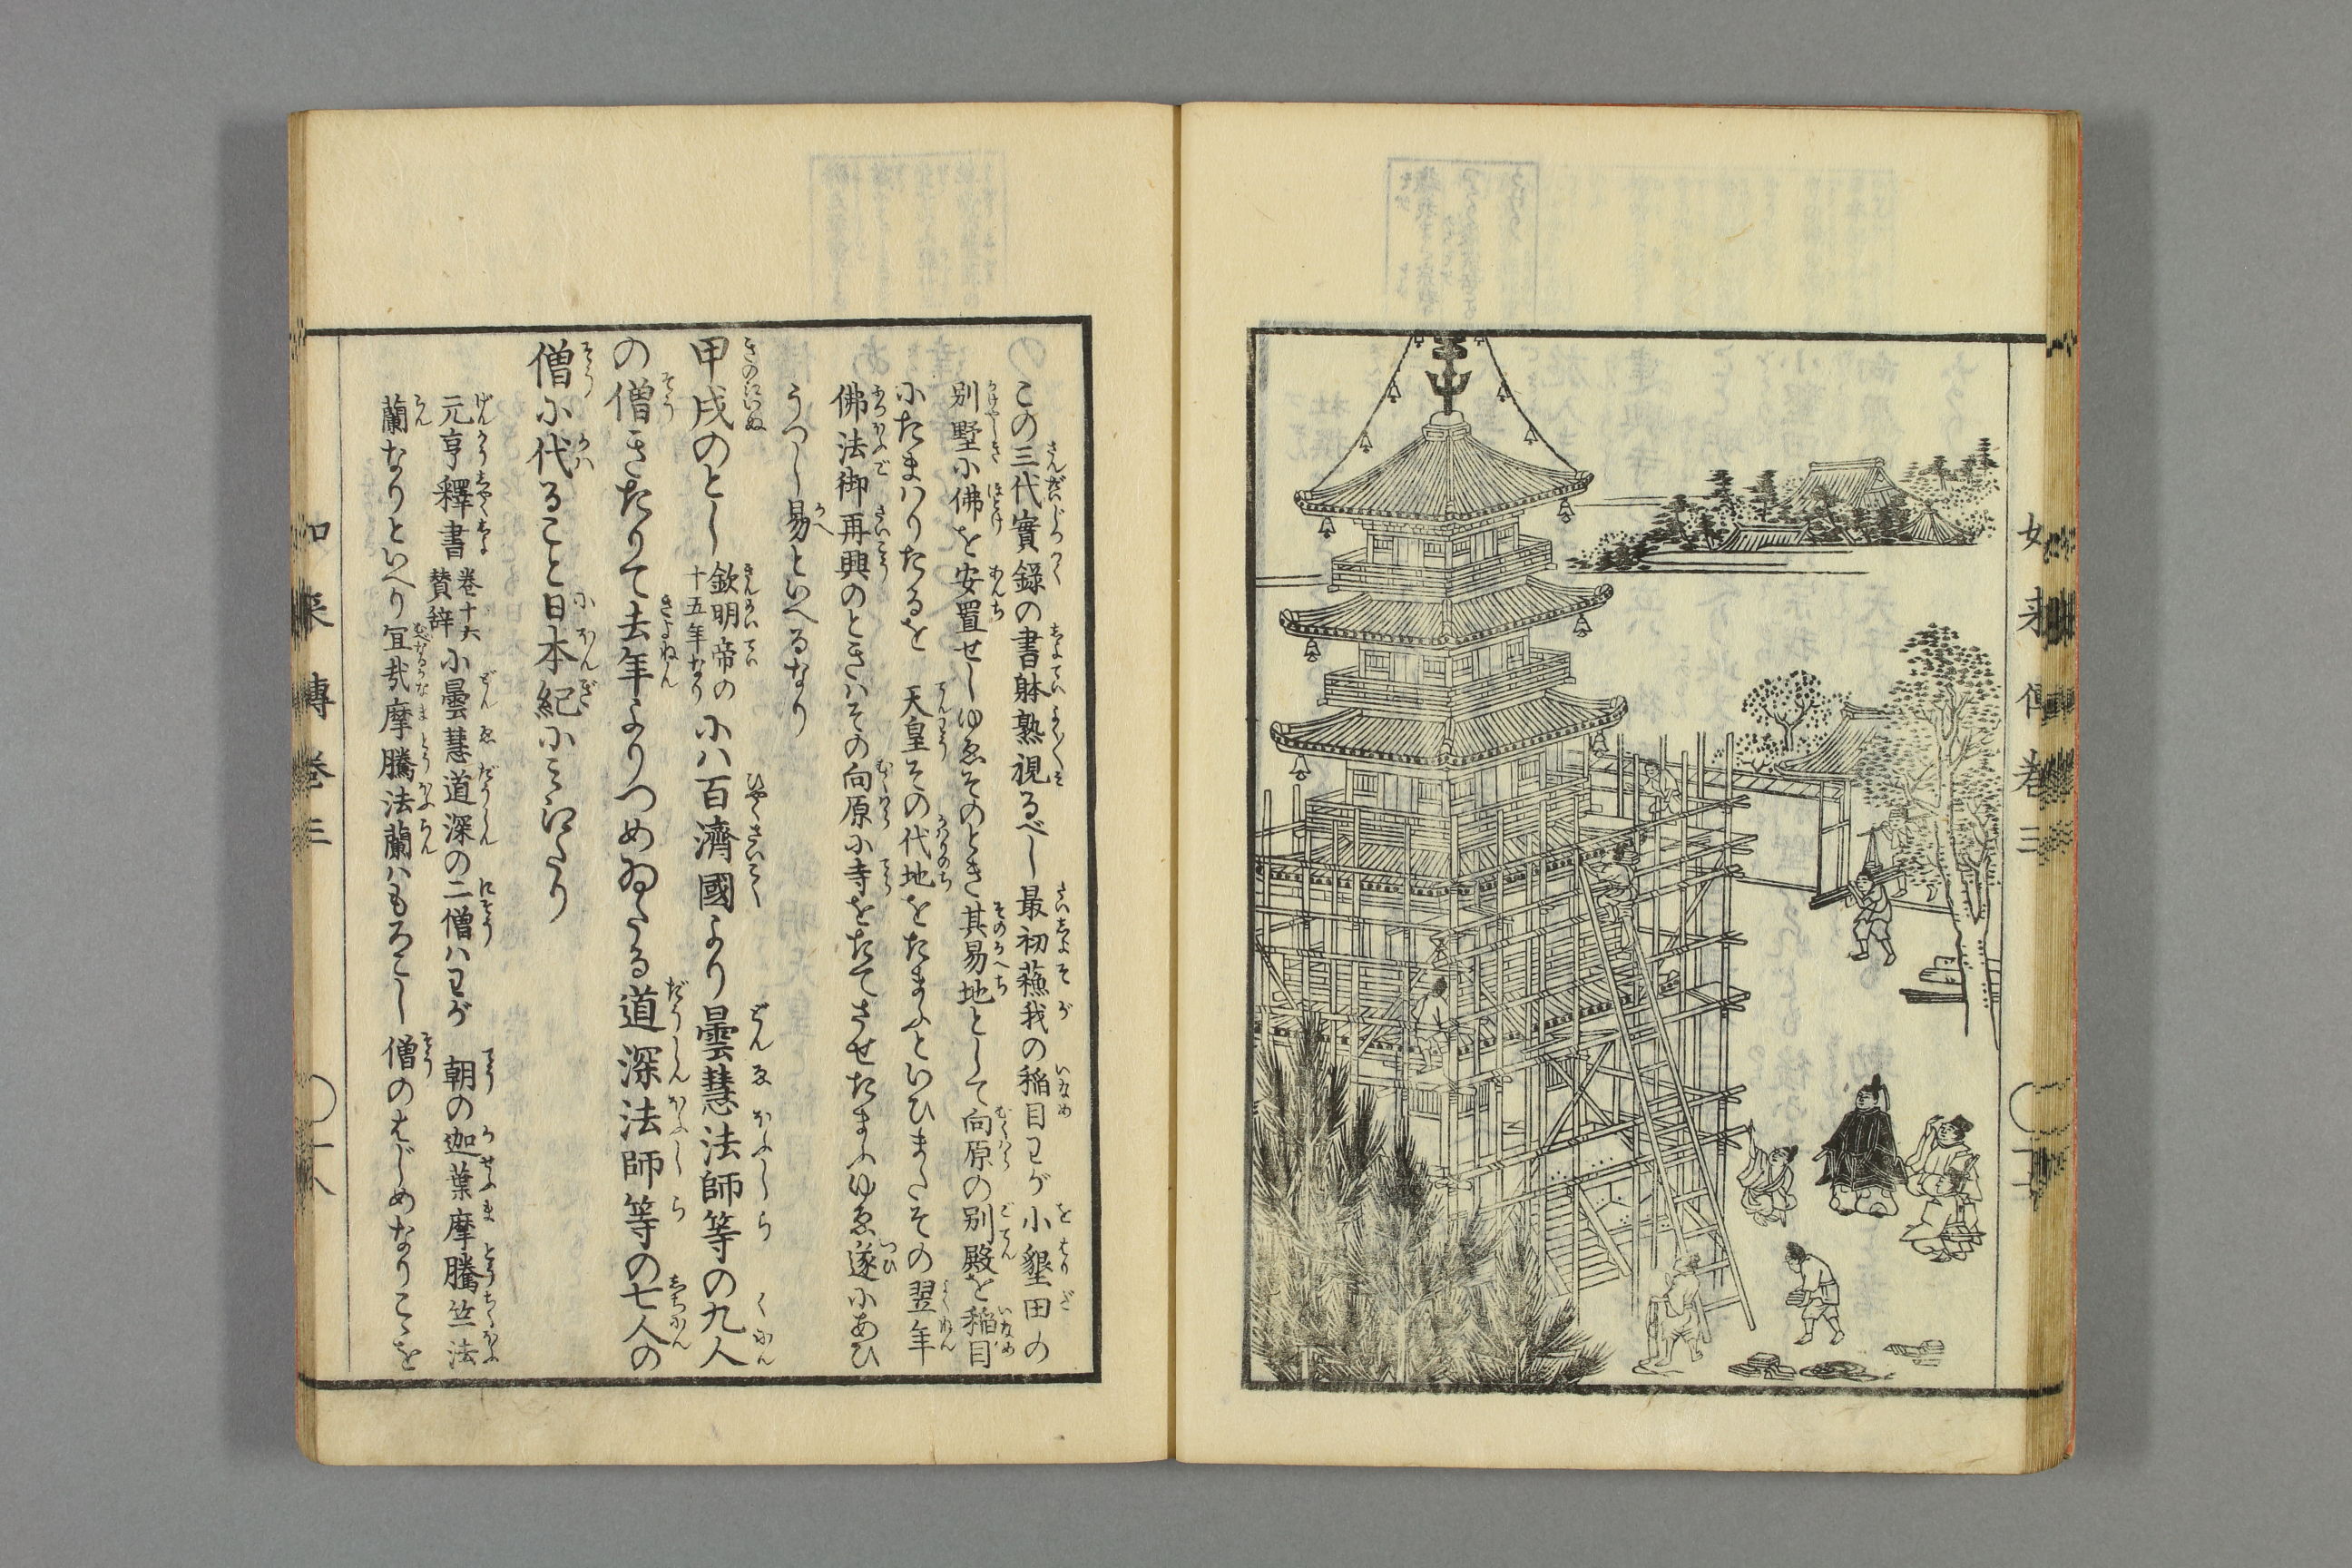 如来傳巻三
この三代實録の書躰熟視るべし最初蘓我の稲目わが小墾田の
別墅に佛を安置せしゆゑそのとき其易地として向原の別殿を稲目
にたまはりたるを天皇その代地をたまふといひまたその翌年
佛法御再興のときはその向原に寺をたてさせたまふゆゑ遂にあひ
うつし易といへるなり
甲戌のとし欽明帝の十五年なりには百濟國より曇慧法師等の九人
の僧きたりて去年よりつめゐたる道深法師等の七人の
僧に代ること日本紀にみえたり
元亨釋書巻十六賛辞に曇慧道深の二僧はわが朝の迦葉摩騰竺法
蘭なりといへり冝哉摩騰法蘭はもろこし僧のはじめなりこゝを
如来傳巻三